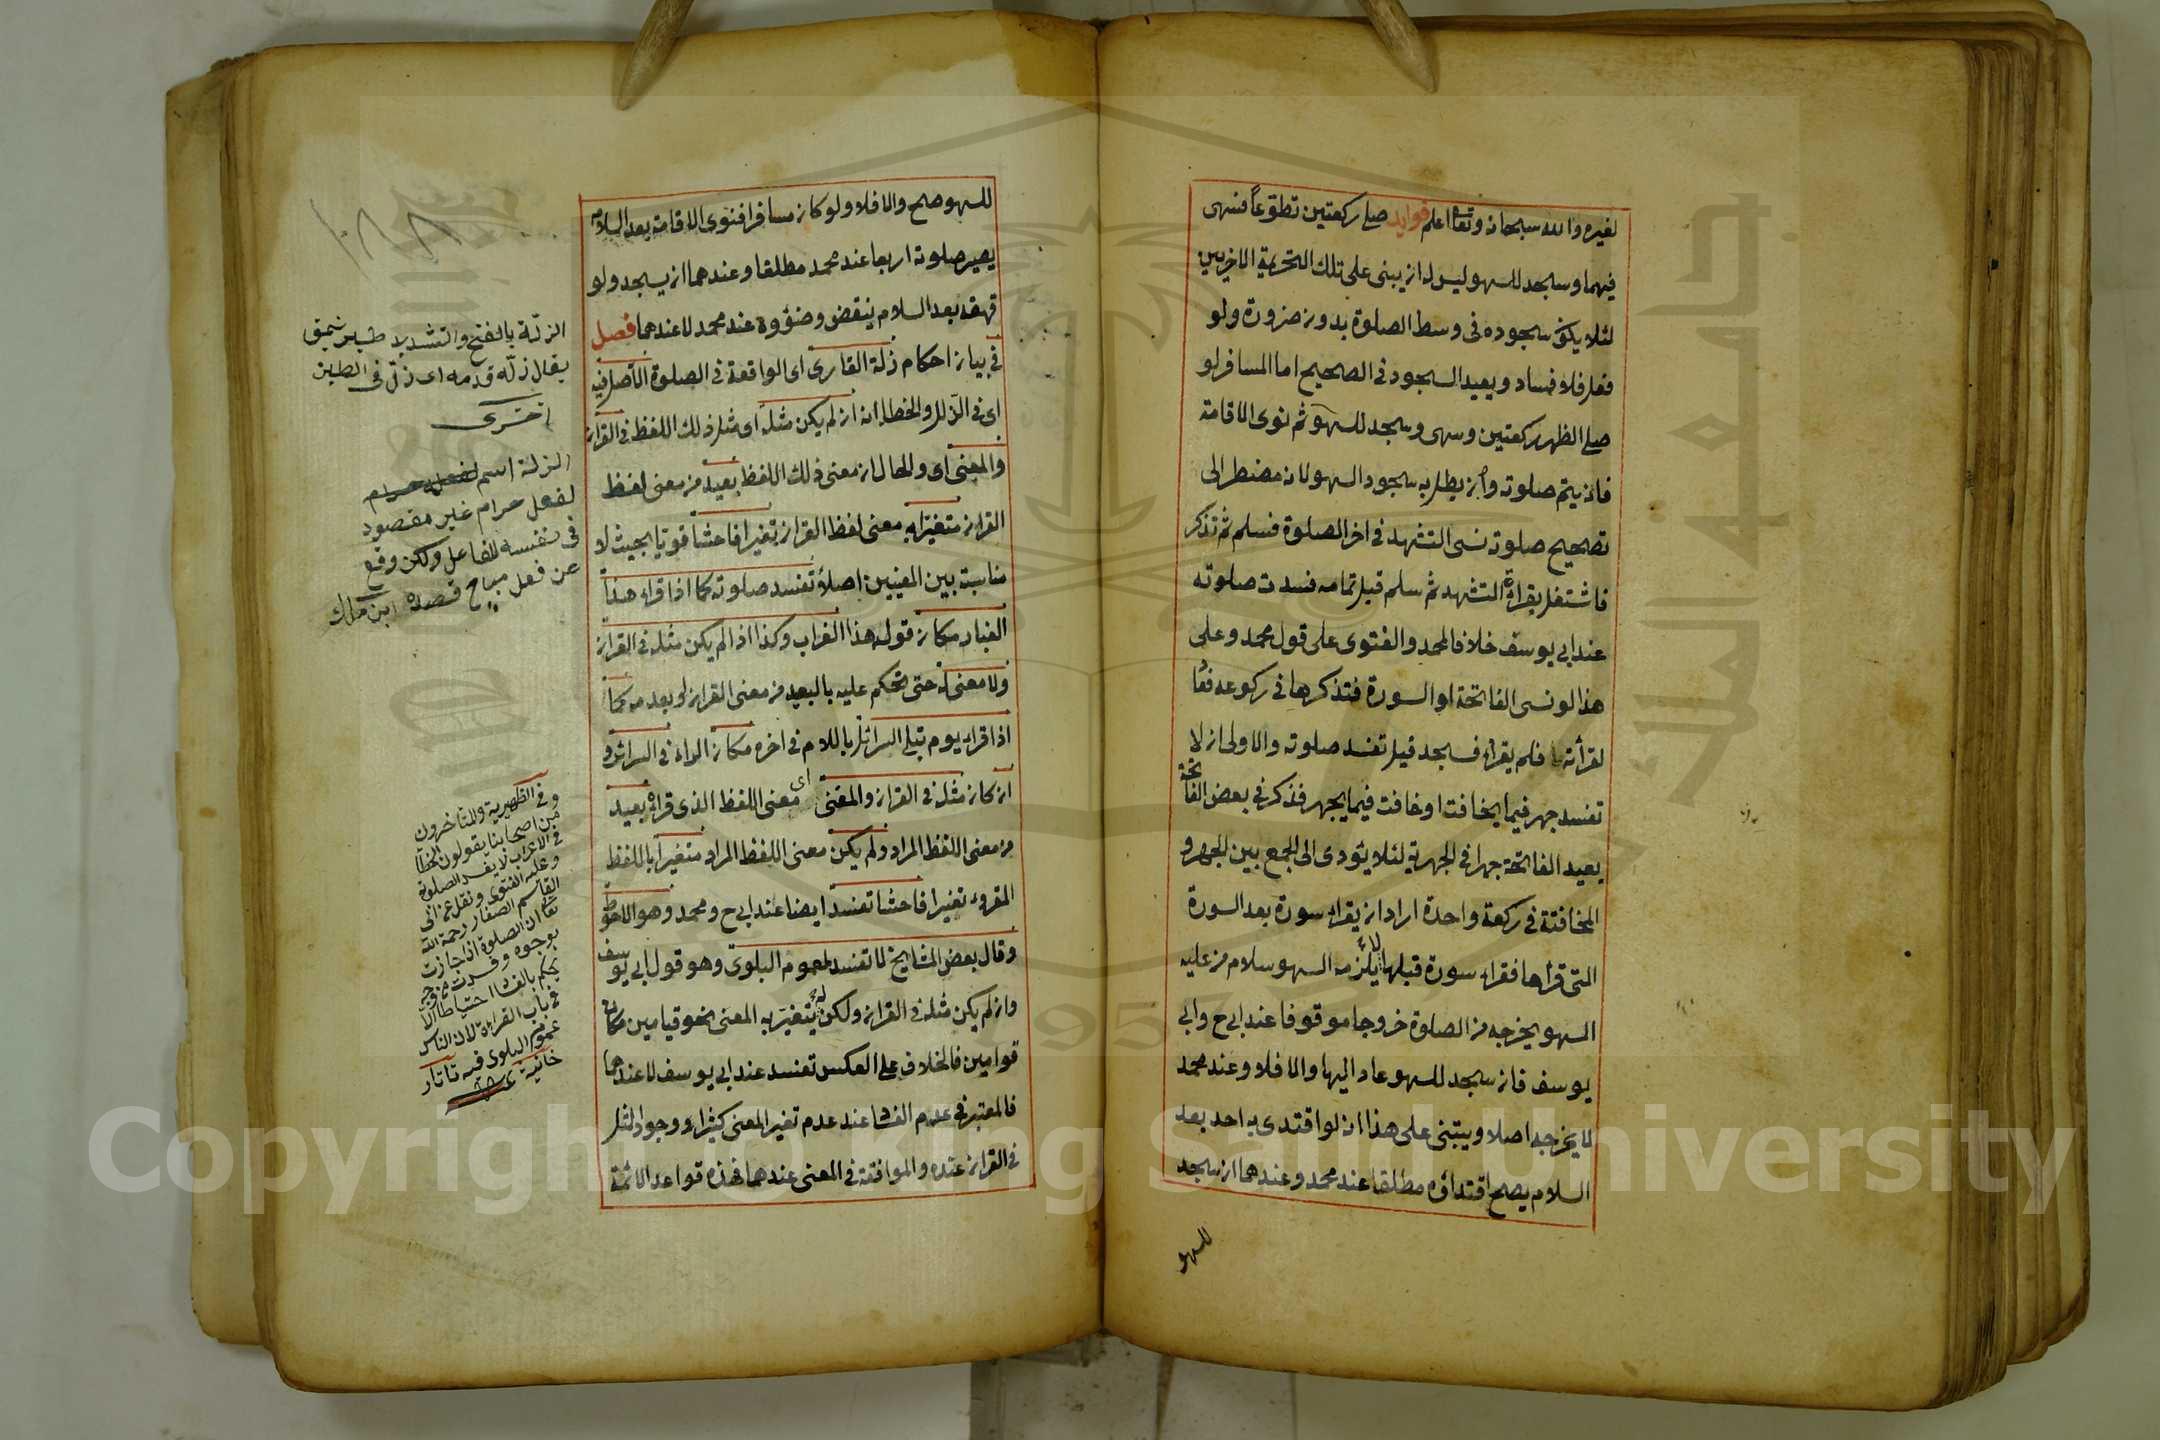 لغيره والله سبحانه وتعا اعلم فوايد صلى ركعتين تطوعاً فسهى
فيهما وسجد للسهو ليس له ان يبنى على تلك التحريمة الاخريين
لئلا يكون سجوده فى وسط الصلوة بدون ضرورة ولو
فعل فلا فساد ويعيد السجود فى الصحيح اما المسافر لو
صلى الظهر ركعتين وسهى وسجد للسهو ثم نوى الاقامة
فانه يتم صلوته وان بطل به سجود السهو لانه مضطر الى
تصحيح صلوته نسى التشهد فى اخر الصلوة فسلم ثم تذكر
فاشتغل بقراءة التشهد ثم سلم قبل تمامه فسدت صلوته
عند ابى يوسف خلافا لمحمد والفتوى على قول محمد وعلى
هذا لو نسى الفاتحة او السورة فتذكرها فى ركوعه فقا
لقرأته فلم يقراء فسجد قيل تفسد صلوته والاولى ان لا
تفسد جهر فيما يخافت او خافت فيما يجهر فذكر فى بعض الفاتحة
يعيد الفاتحة جهرا فى الجهرية لئلا يؤدى الى الجمع بين الجهر و
المخافتة فى ركعة واحدة اراد ان يقراء سورة بعد السورة
التى قرأها فقراء سورة قبلها لا يلزمه السهو سلام من عليه
السهو يخرجه من الصلوة خروجا موقوفا عند ابى ح وابى
يوسف فان سجد للسهو عاد اليها والا فلا وعند محمد
لا يخرجه اصلا ويبتنى على هذا انه لو اقتدى به احد بعد
السلام يصح اقتداؤه مطلقا عند محمد وعندهما ان سجد
للسهو
للسهو صح والا فلا ولو كان مسافرا فنوى الاقامة بعد السلام
يصير صلوته اربعا عند محمد مطلقا وعندهما ان يسجد ولو
قهقه بعد السلام ينقض وضؤوه عند محمد لا عندهما فصل
فى بيان احكام زلة القارى اى الواقعة فى الصلوة الاصل فيه
اى فى الزلل والخطاء انه ان لم يكن مثله اى مثل ذلك اللفظ فى القران
والمعنى اى والحال ان معنى ذلك اللفظ بعيد من معنى لفظ
القران متغيرا به معنى لفظ القران تغيرا فاحشا قويا بحيث لا
مناسبة بين المعنيين اصلا تفسد صلوته كما اذا قراء هذا
الغبار مكان قوله هذا الغراب وكذا اذا لم يكن مثله فى القران
ولا معنى له حتى يحكم عليه بالبعد من معنى القران او بعدمه كما
اذا قراء يوم تبلى السرائل باللام فى اخره مكان الراء فى السرائر و
ان كان مثله فى القران والمعنى اى معنى اللفظ الذى قراه بعيد
من معنى اللفظ المراد ولم يكن معنى اللفظ المراد متغيرا باللفظ
المقروء تغيرا فاحشا تفسد ايضا عند ابى ح ومحمد وهو الاحوط
وقال بعض المشايخ لا تفسد لعموم البلوى وهو قول ابى يوسف
وان لم يكن مثله فى القران ولكن لم يتغير به المعنى نحو قيامين مكان
قوامين فالخلاف على العكس تفسد عند ابى يوسف لا عندهما
فالمعتبر فى عدم الفسا عند عدم تغير المعنى كثيرا وجود المثل
فى القران عنده والموافقة فى المعنى عندهما فهذه قواعد الائمة
الزلة بالفتح والتشديد
يقال زلة قدمه اى زل فى الطين
اخترى
الزلة اسم لفعل حرام
لفعل حرام غير مقصود
فى نفسه للفاعل ولكن وقع
عن فعل مباح قصده ابن ملك
وفى الظهيرية والمتاخرون
من اصحابنا يقولون الخطأ
فى الاعراب لا يفسد الصلوة
وعليه الفتوى ونقل عن ابى
القاسم الصفار رحمة الله
تعا ان الصلوة اذا جازت
بوجوه وفسدت من وجه
يحكم بالفسا احتياطا الا
فى باب القراءة لان الناس
عموم البلوى فيه تاتار
خانية